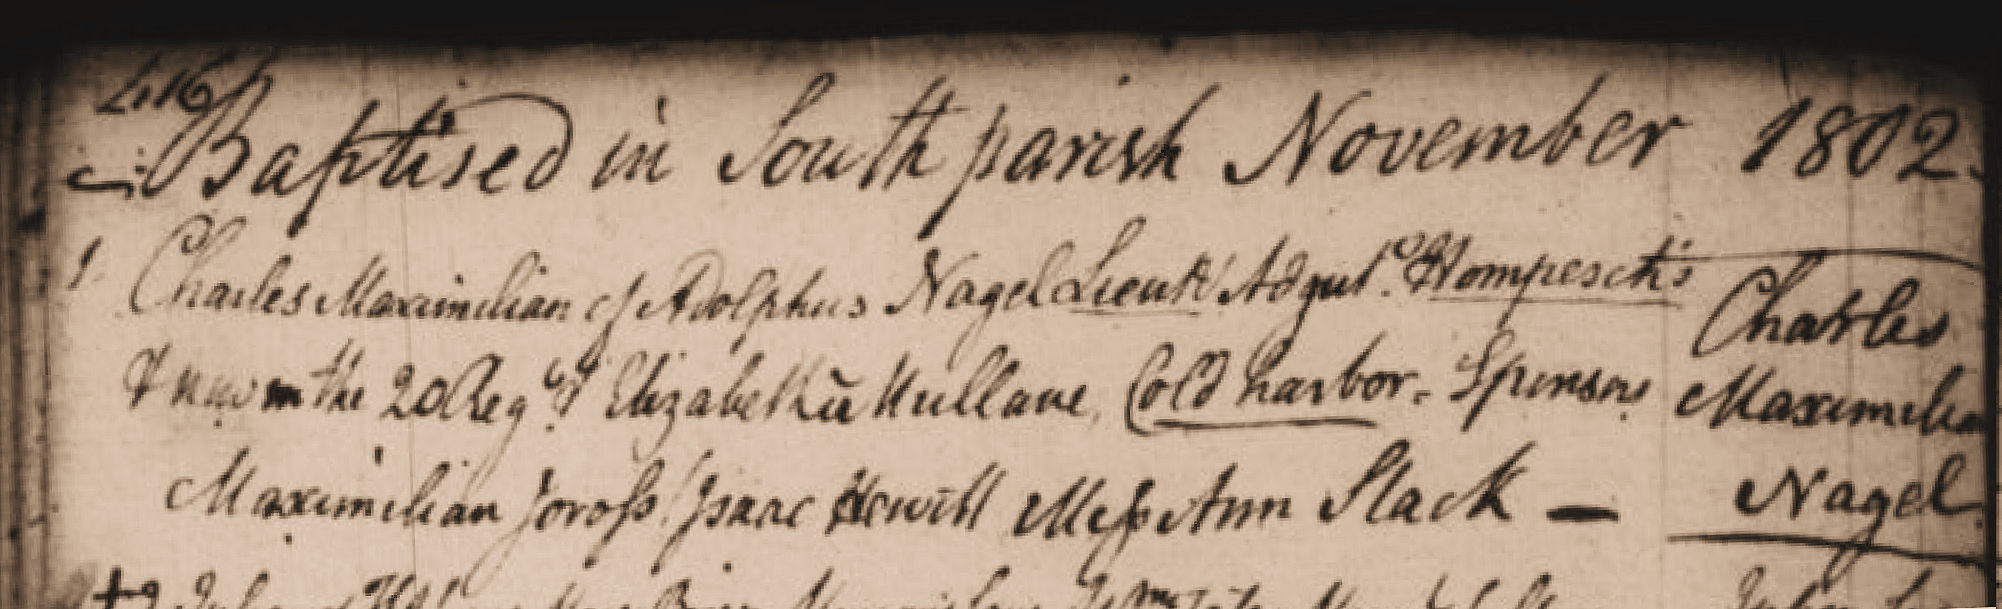 416
Baptised in South parish November 1802.
1. Charles Maximilian of Adolphus Nagel Lieut! Adgut. Hompesch's
& now in the 20 Regt. & Elizabeth Mullane, Cold harbor. Sponsors
Maximilian Isaac Hewitt Ann Slack —
Charles
Maximilian
Nagel